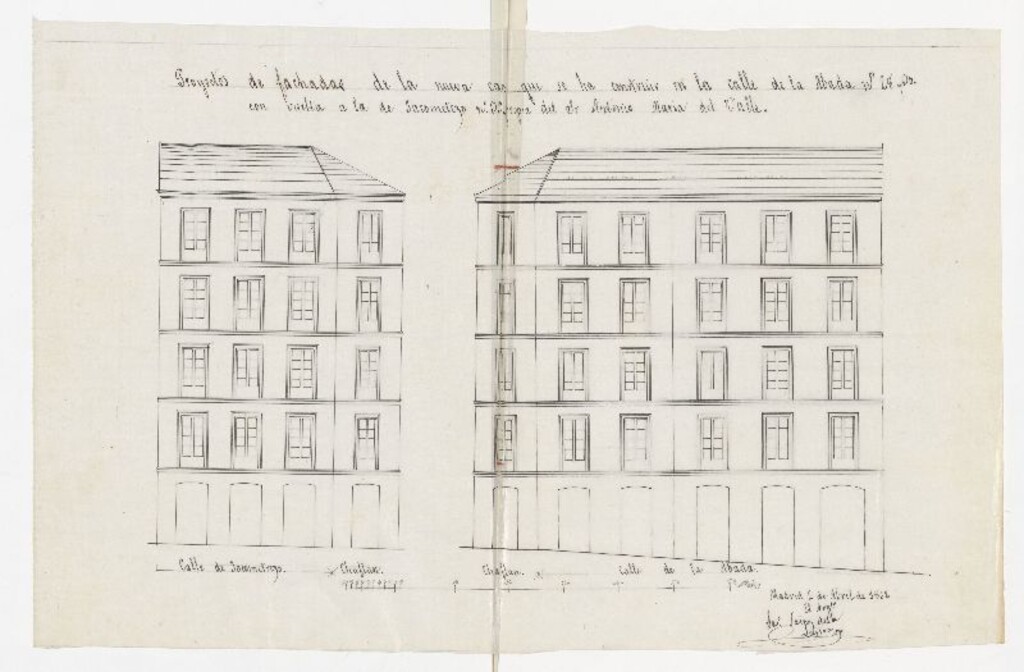 Proyectos de fachadas de la nueva casa que se ha construir en la calle de la Abada nº 24 y
con vuelta a la de Jacometrezo del Sr Antonio Maria del Valle.
Calle de Jacometrezo. Chaflan. Chaflan. Calle de la Abada.
Madrid 2 de Abril de
El Arqto